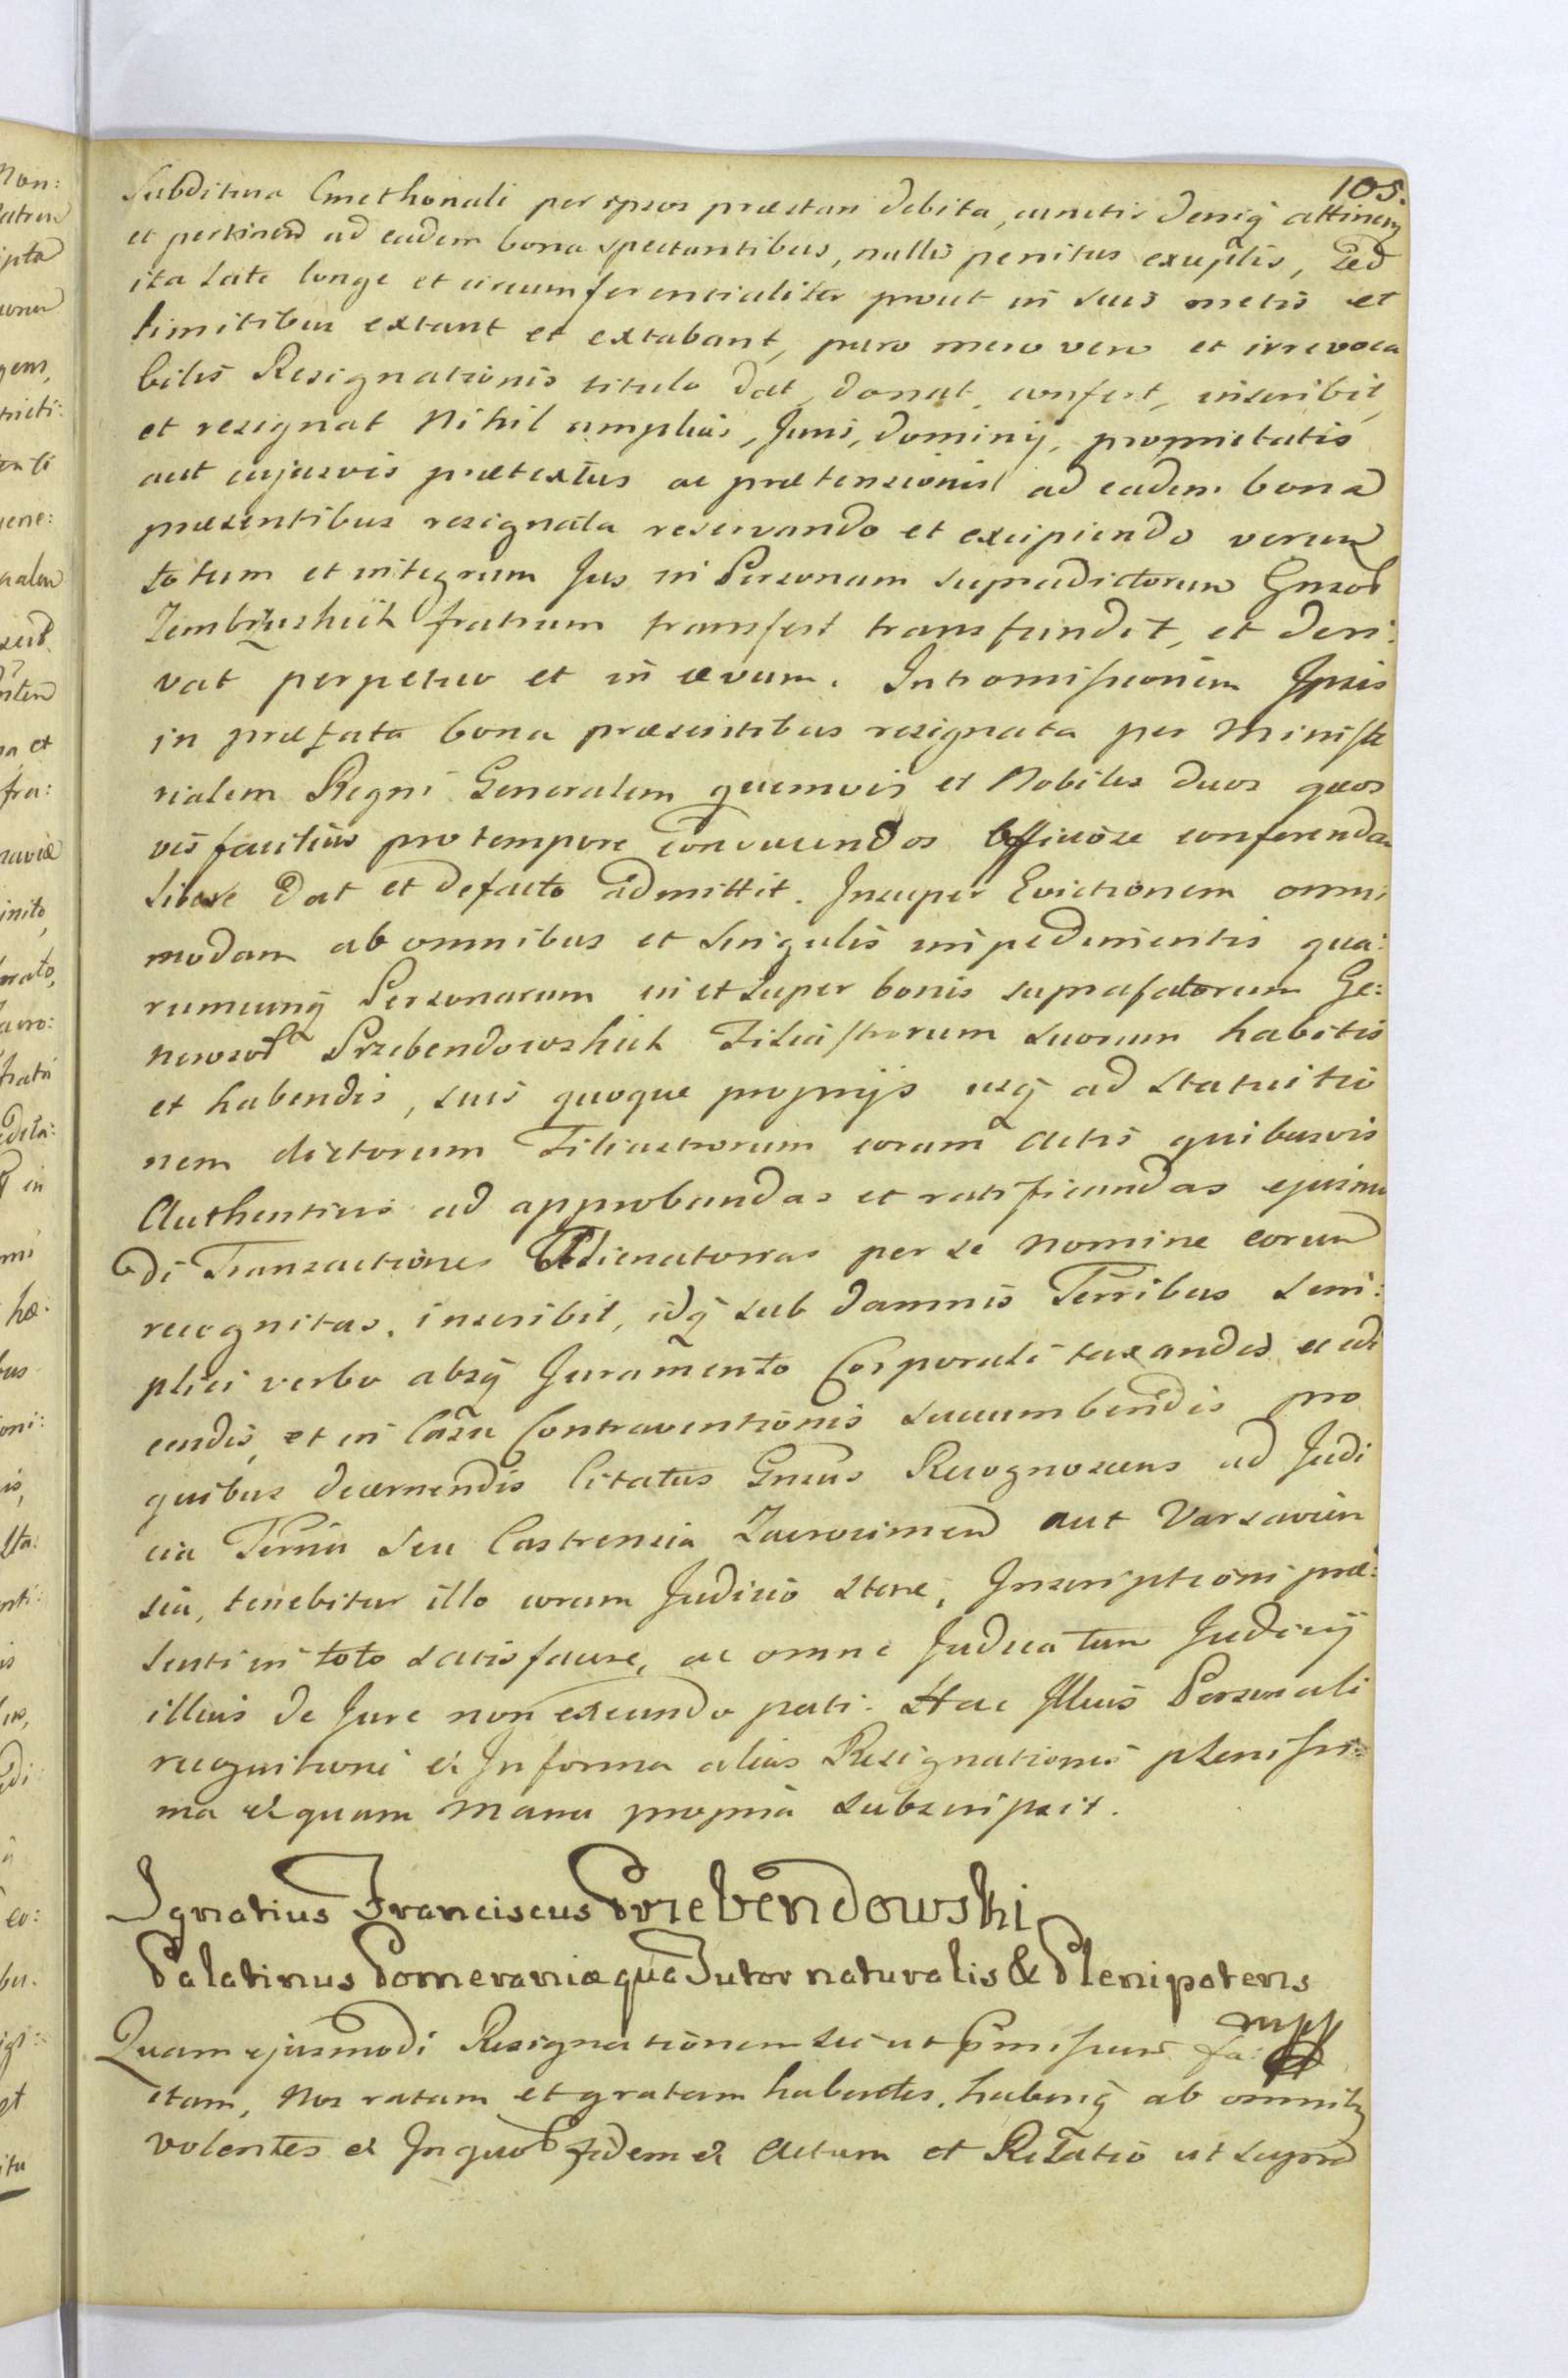 105.
Subditiva Cmethonali per ipsos præstari debita, cunctis deniq attinen
et pertinen ad eadem bona spectantibus, nullis penitus exceptis, Sed
ita late longe et circumferentialiter prout in suis metis et
limitibus extant et extabant, puro mero vero et irrevoca
bilis Resignationis titulo dat, donat, confert, inscribit,
et resignat Nihil amplius, Juris, dominij, proprietatis
aut cujusvis prætextus ac prætensionis ad eadem bona
præsentibus resignata reservando et excipiendo verum
totum et integrum Jus in Personam supradictorum Gnsor
Zembrzuskich fratrum transfert transfundit, et deri:
vat perpetuo et in ævum. Intromissionem Ipsis
in præfata bona præsentibus resignata per Ministe
rialem Regni Generalem quemvis et Nobiles duos quos
vis facilius pro tempore convenendos officiose conferendam
libere dat et defacto admittit. Insuper Evictionem omni
modam ab omnibus et singulis impedimentis qua:
rumcunq Personarum in et super bonis suprafatorum Ge:
nerosor Przebendowskich Filiastrorum suorum habitis
et habendis, suis quoque proprijs usq ad statuitio
nem dictorum Filiastrorum coram Actis quibusvis
Authenticis ad approbandas et ratificandas ejusmo
di Transactiones Abalienatorias per se nomine eorum
recognitas, inscribit, idq sub damnis Terribus sim:
plici verbo absq Juramento Corporali taxandis et edi
cendis, et in Casu Contraventionis succumbendis pro
quibus decernendis Citatus Gnsus Recognoscens ad Judi
cia Terria seu Castrensia Zacrocimen aut Varsavien
sia, tenebitur illo coram Judicio stare, Inscriptioni præ:
senti in toto satisfacere, ac omne Judicatum Judicij
illius de Jure non exeundo pati. Hac Illius Personali
recognitione et In forma alias Resignationis plenissi:
ma et quam Manu propria subscripsit.
Ignatius Franciscus Przebendowski
Palatinus Pomeraniæ qua Tutor naturalis & Plenipotens
mpp
Quam ejusmodi Resignationem sic ut fa:
ctam, Nos ratam et gratam habentes, haberiq ab omnib
volentes et In quor fidem et Actum et Relatio ut supra